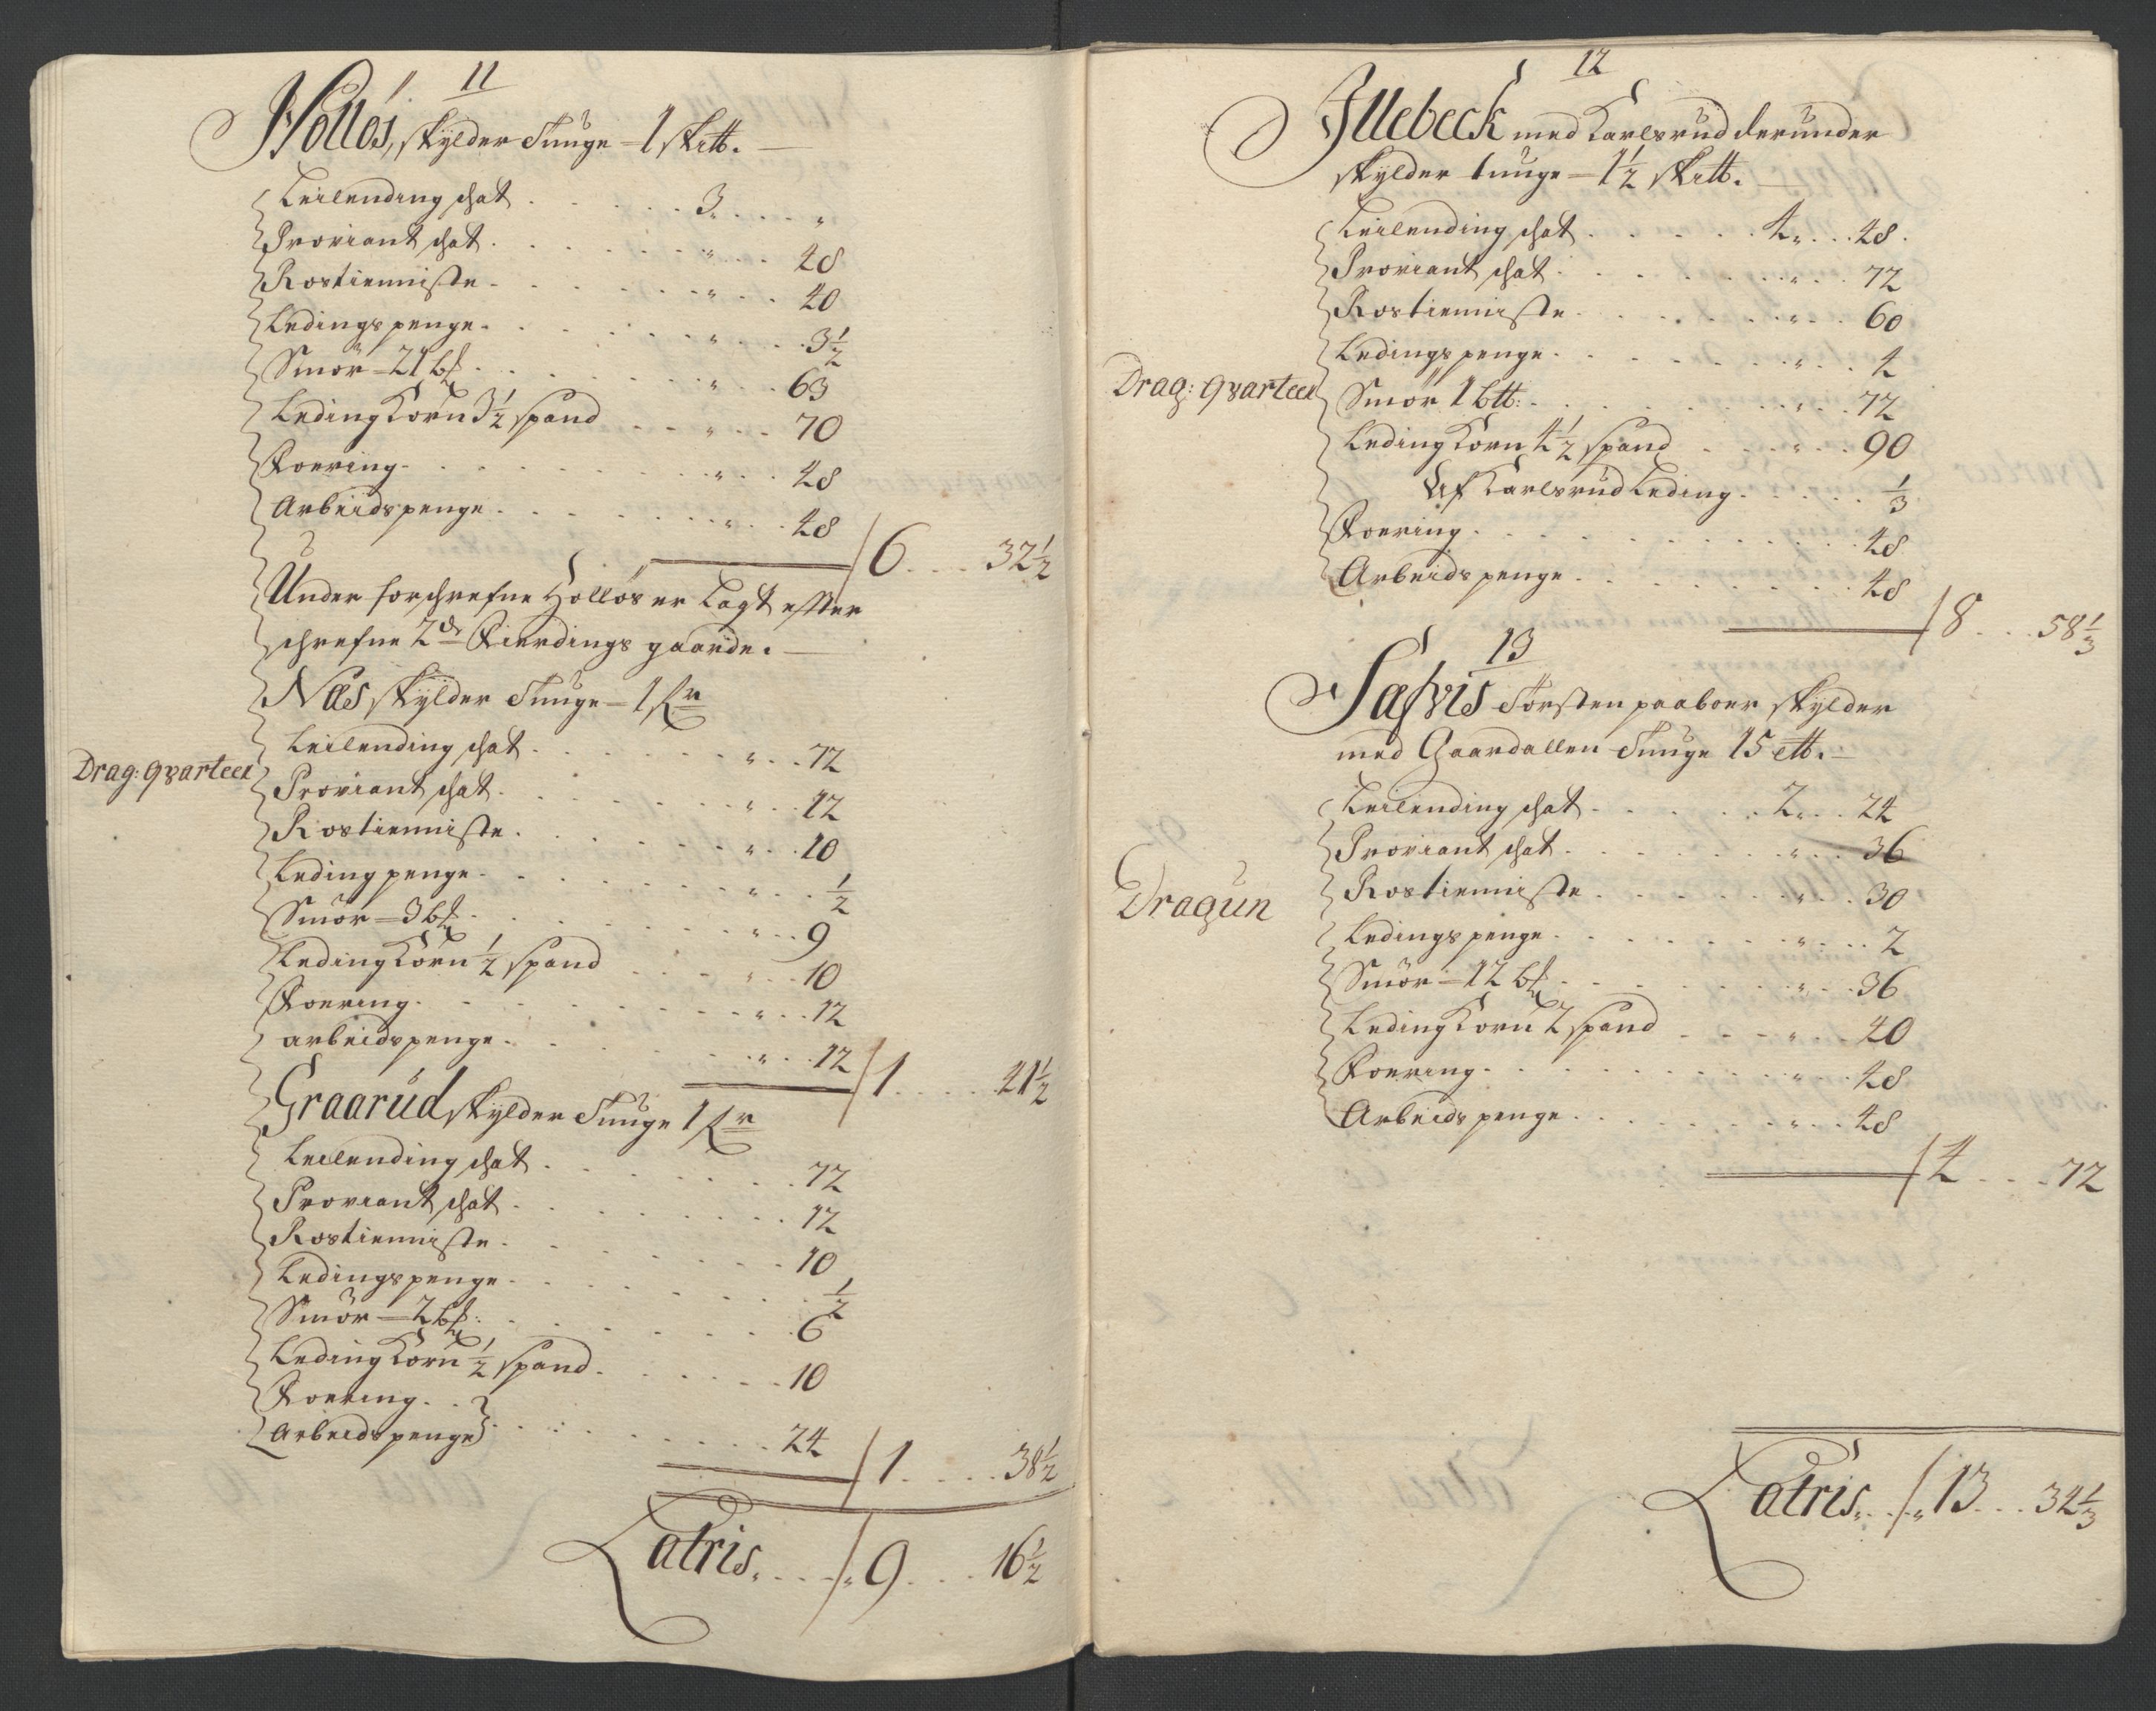 11
Holløs, skylder Tunge - 1 sktt. —
Leilending schat . . . . . 3 . . . "
Proviant schat . . . . . " . . 48
Rostienniste . . . . . " . . 40
Ledings penge . . . . . " . . 3½
Smör - 21 bf . . . . . " . . 63
Leding Korn 3½ spand . . . " . . 70
Foering . . . . . " . . 48
Arbeidspenge . . . . . " . . 48
/ 6 . . . 32½
Under forschrefne Holløs er Lagt effter
schrefne 2de Fierdings gaarde. —
Næs skylder Tunge - 1 fr
Drag: qvarteer
Leilending schat . . . . . " . . 72
Proviant schat . . . . . " . . 12
Rostienniste . . . . . " . . 10
Leding penge . . . . . " . . ½
Smör - 3 bf . . . . . " . . 9
Leding Korn ½ spand . . . " . . 10
Foering . . . . . " . . 12
arbeidspenge . . . . . " . . 12
/ 1 . . . 41½
Graarud skylder Tunge 1 fr
Leilending schat . . . . . 72
Proviant schat . . . . . 12
Rostienniste . . . . . 10
Ledingspenge . . . . . ½
Smör - 2 bf: . . . . . 6
Leding Korn ½ spand . . . . . 10
Foering . .
Arbeidspenge } . . . . . 24
/ 1 . . . . 38½
Latris . . . / 9 . . . 16½
12
Illebeck med Karlsrud derunder
skylder tunge - 1½ sktt. —
Drag: qvarteer
Leilending schat . . . . . 4 " . . 48.
Proviant schat . . . . . " . . 72
Rostienniste . . . . . " . . 60
Ledings penge . . . . . " . . 4
Smör 1 btt: . . . . . " . . 72
Leding Korn 4½ spand . . . " . . 90
Af Karlsrud Leding . . . . . ⅓
Foering . . . . . 48
Arbeids penge . . . . . 48
/ 8 . . . 58⅓
13
Safvis Torsten paaboer skylder
med Gaardallen Tunge 15 ett. —
Dragun
Leilending schat . . . . . 2 " . . 24
Proviant schat . . . . . " . . 36
Rostienniste . . . . . " . . 30
Ledings penge . . . . . " . . 2
Smör - 12 bf . . . . . " . . 36
Leding Korn 2 spand . . . " . . 40
Foering . . . . . " . . 48
Arbeids penge . . . . . " . . 48
/ 4 . . . 72
Latris . . . / 13 . . . 34⅓